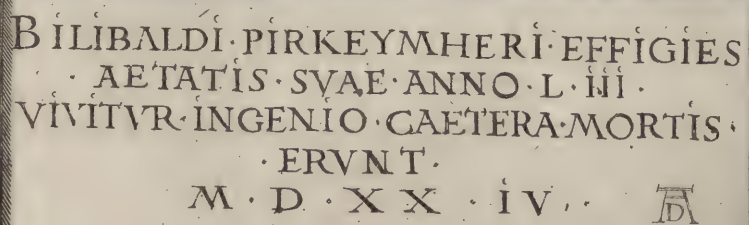 BILIBALDI·PIRKEYMHERI·EFFIGIES
·AETATIS·SVAE·ANNO·L·iii·
VIVITVR·INGENIO·CAETERA·MORTIS·
·ERVNT·
M·D·XX·IV·
AD